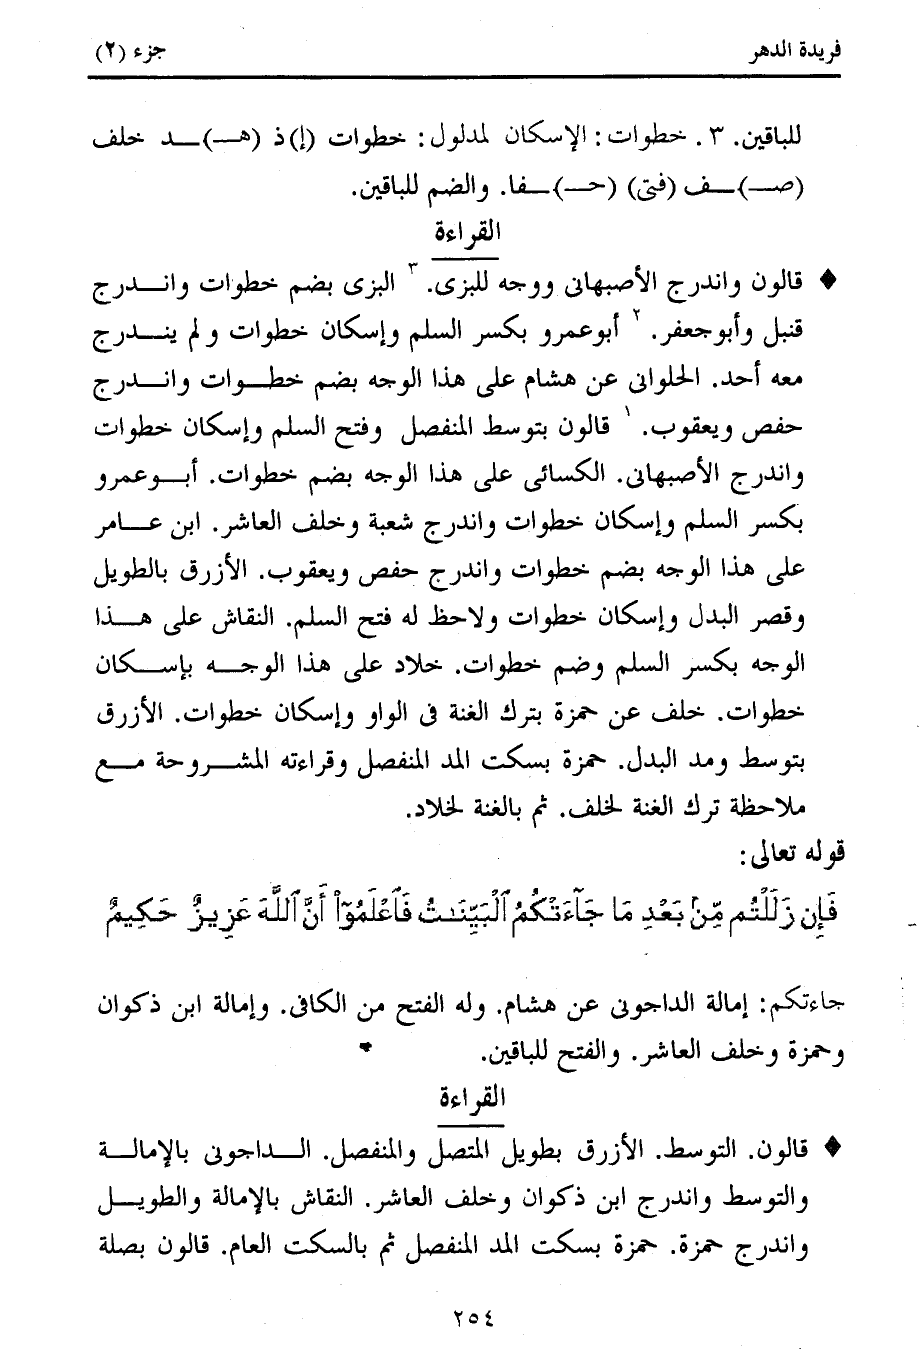 فريدة الدهر
جزء (٢)
للباقين. ٣. خطوات: الإسكان لمدلول: خطوات (إ)ذ (هـــ)ــد خلف
(صـــ)ــف (فتى) (حـــ)ــفا. والضم للباقين.
القراءة
♦ قالون واندرج الأصبهانى ووجه للبزى. ٣ البزى بضم خطوات وانـــدرج
قنبل وأبوجعفر. ٢ أبوعمرو بكسر السلم وإسكان خطوات ولم ينـــدرج
معه أحد. الحلوانى عن هشام على هذا الوجه بضم خطــوات وانــدرج
حفص ويعقوب. ١ قالون بتوسط المنفصل وفتح السلم وإسكان خطوات
واندرج الأصبهانى. الكسائى على هذا الوجه بضم خطوات. أبــوعمرو
بكسر السلم وإسكان خطوات واندرج شعبة وخلف العاشر. ابن عــامر
على هذا الوجه بضم خطوات واندرج حفص ويعقوب. الأزرق بالطويل
وقصر البدل وإسكان خطوات ولاحظ له فتح السلم. النقاش على هـــذا
الوجه بكسر السلم وضم خطوات. خلاد على هذا الوجــه بإســكان
خطوات. خلف عن حمزة بترك الغنة فى الواو وإسكان خطوات. الأزرق
بتوسط ومد البدل. حمزة بسكت المد المنفصل وقراءته المشــروحة مــع
ملاحظة ترك الغنة لخلف. ثم بالغنة لخلاد.
قوله تعالى:
فَإِن زَلَلْتُم مِّنۢ بَعْدِ مَا جَآءَتْكُمُ ٱلْبَيِّنَـٰتُ فَٱعْلَمُوٓا۟ أَنَّ ٱللَّهَ عَزِيزٌ حَكِيمٌ
جاءتكم: إمالة الداجونى عن هشام. وله الفتح من الكافى. وإمالة ابن ذكوان
وحمزة وخلف العاشر. والفتح للباقين.
القراءة
♦ قالون. التوسط. الأزرق بطويل المتصل والمنفصل. الـــداجونى بالإمالــة
والتوسط واندرج ابن ذكوان وخلف العاشر. النقاش بالإمالة والطويــل
واندرج حمزة. حمزة بسكت المد المنفصل ثم بالسكت العام. قالون بصلة
٢٥٤